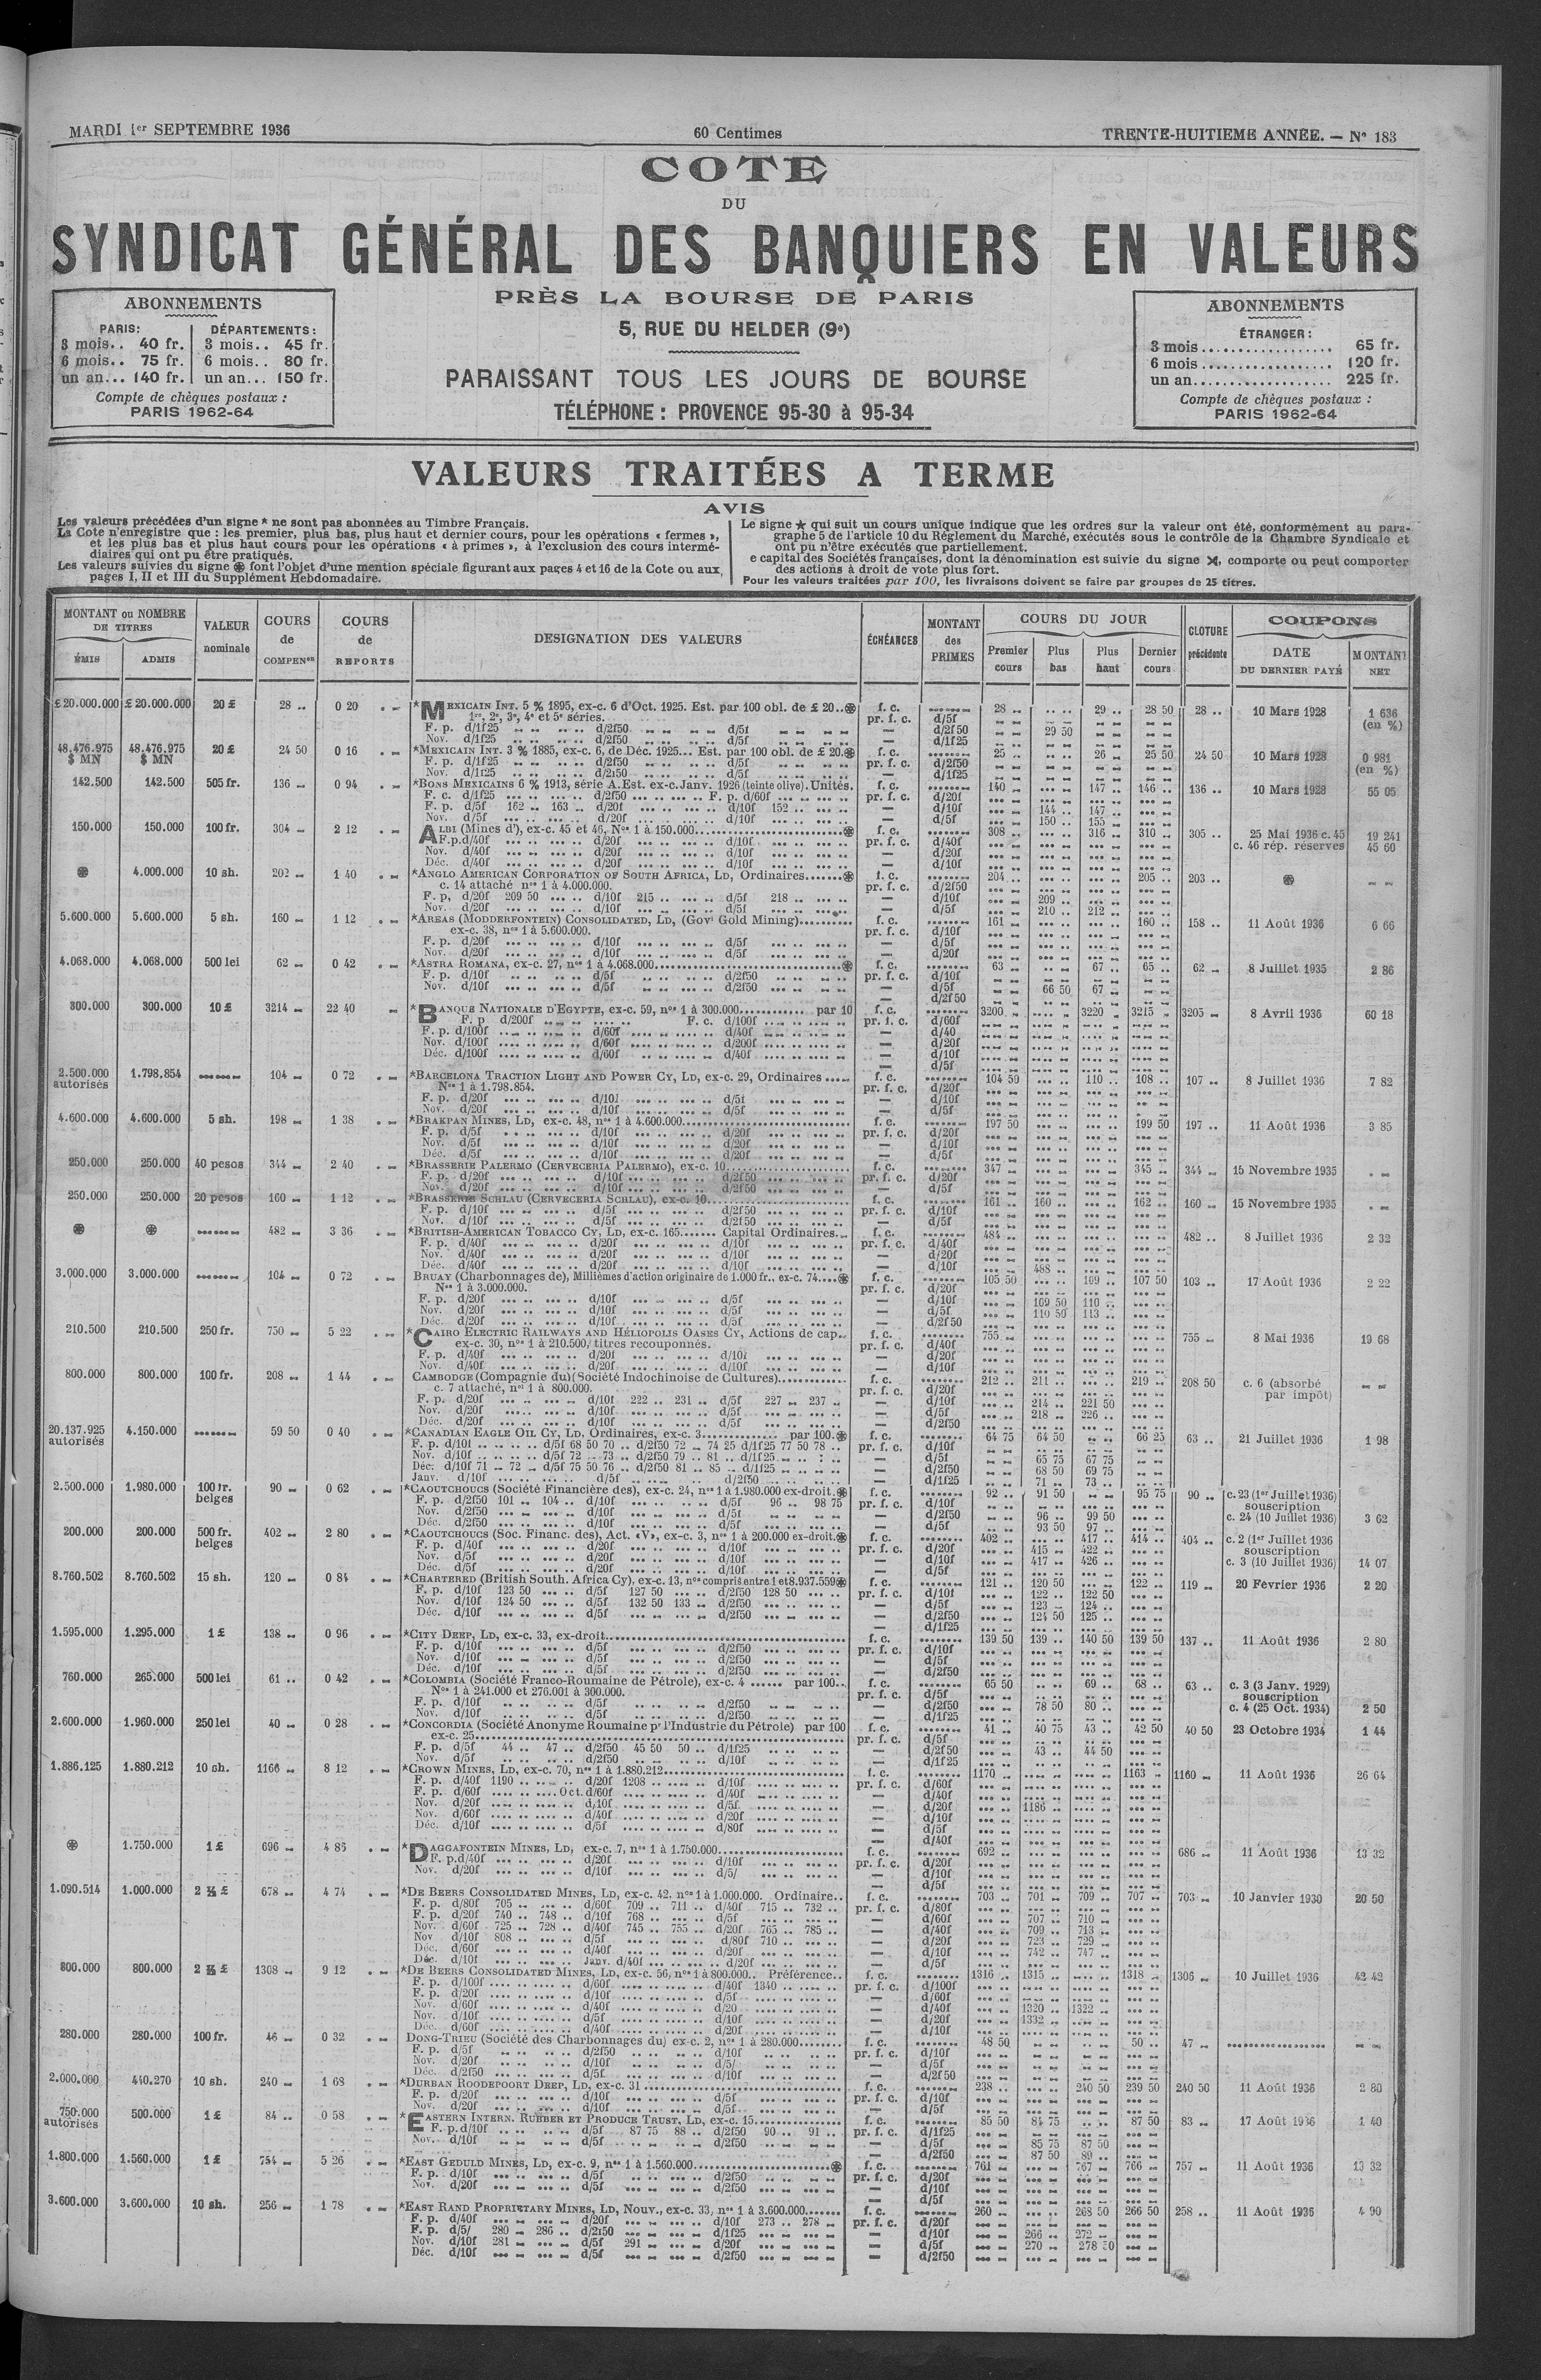 MARDI 1er SEPTEMBRE 1936
60 Centimes
TRENTE-HUITIEME ANNÉE. — N° 183
COTE
DU
SYNDICAT GÉNÉRAL DES BANQUIERS EN VALEURS
PRÈS LA BOURSE DE PARIS
5, RUE DU HELDER (9e)
PARAISSANT TOUS LES JOURS DE BOURSE
TÉLÉPHONE : PROVENCE 95-30 à 95-34
ABONNEMENTS
PARIS: DÉPARTEMENTS:
3 mois.. 40 fr. 3 mois.. 45 fr.
6 mois.. 75 fr. 6 mois.. 80 fr.
un an... 140 fr. un an... 150 fr.
Compte de chèques postaux :
PARIS 1962-64
ABONNEMENTS
ÉTRANGER :
3 mois 65 fr.
6 mois 120 fr.
un an 225 fr.
Compte de chèques postaux :
PARIS 1962-64
VALEURS TRAITÉES A TERME
AVIS
Les valeurs précédées d'un signe * ne sont pas abonnées au Timbre Français.
La Cote n'enregistre que : les premier, plus bas, plus haut et dernier cours, pour les opérations « fermes »,
et les plus bas et plus haut cours pour les opérations « à primes », à l'exclusion des cours intermé-
diaires qui ont pu être pratiqués.
Les valeurs suivies du signe ⊛ font l'objet d'une mention spéciale figurant aux pages 4 et 16 de la Cote ou aux
pages I, II et III du Supplément Hebdomadaire.
Le signe ★ qui suit un cours unique indique que les ordres sur la valeur ont été, conformément au para-
graphe 5 de l'article 10 du Règlement du Marché, exécutés sous le contrôle de la Chambre Syndicale et
ont pu n'être exécutés que partiellement.
e capital des Sociétés françaises, dont la dénomination est suivie du signe ⋊, comporte ou peut comporter
des actions à droit de vote plus fort.
Pour les valeurs traitées par 100, les livraisons doivent se faire par groupes de 25 titres.
MONTANT ou NOMBRE DE TITRES
ÉMIS ADMIS
VALEUR nominale
COURS de COMPENon
COURS de REPORTS
DESIGNATION DES VALEURS
ÉCHÉANCES
MONTANT des PRIMES
COURS DU JOUR
Premier cours Plus bas Plus haut Dernier cours
CLOTURE précédente
COUPONS
DATE DU DERNIER PAYÉ MONTANT NET
£ 20.000.000 £ 20.000.000 20 £ 28 .. 0 20 *MEXICAIN INT. 5 % 1895, ex-c. 6 d'Oct. 1925. Est. par 100 obl. de £ 20..⊛ f. c. 28 29 .. 28 50 28 .. 10 Mars 1928 1 636 (en %)
1re, 2e, 3e, 4e et 5e séries. pr. f. c. d/5f
F. p. d/1f25 d/2f50 d/5f — d/2f50 29 50
Nov. d/1f25 d/2f50 d/5f — d/1f25
48.476.975 $ MN 48.476.975 $ MN 20 £ 24 50 0 16 *MEXICAIN INT. 3 % 1885, ex-c. 6, de Déc. 1925... Est. par 100 obl. de £ 20.⊛ f. c. 25 .. 26 25 50 24 50 10 Mars 1928 0 981 (en %)
F. p. d/1f25 d/2f50 d/5f pr. f. c. d/2f50
Nov. d/1f25 d/2f50 d/5f — d/1f25
142.500 142.500 505 fr. 136 0 94 *BONS MEXICAINS 6 % 1913, série A. Est. ex-c. Janv. 1926 (teinte olive). Unités. f. c. 140 147 .. 146 .. 136 .. 10 Mars 1928 55 05
F. c. d/1f25 d/2f50 F. p. d/60f pr. f. c. d/20f
F. p. d/5f 162 163 d/20f d/10f 152 — d/10f 144 .. 147 ..
Nov. d/5f d/20f d/10f — d/5f 150 .. 155 ..
150.000 150.000 100 fr. 304 2 12 ALBI (Mines d'), ex-c. 45 et 46, Nos 1 à 150.000 ⊛ f. c. 308 316 310 305 .. 25 Mai 1936 c. 45 19 241
F. p. d/40f d/20f d/10f pr. f. c. d/40f c. 46 rép. réserves 45 60
Nov. d/40f d/20f d/10f — d/20f
Déc. d/40f d/20f d/10f — d/10f
⊛ 4.000.000 10 sh. 202 1 40 *ANGLO AMERICAN CORPORATION OF SOUTH AFRICA, LD, Ordinaires ⊛ f. c. 204 205 203 .. ⊛
c. 14 attaché nos 1 à 4.000.000. pr. f. c. d/2f50
F. p. d/20f 209 50 d/10f 215 d/5f 218 — d/10f 209
Nov. d/20f d/10f d/5f — d/5f 210 .. 212 ..
5.600.000 5.600.000 5 sh. 160 1 12 *AREAS (MODDERFONTEIN) CONSOLIDATED, LD, (Govt Gold Mining) f. c. 161 160 158 .. 11 Août 1936 6 66
ex-c. 38, nos 1 à 5.600.000. pr. f. c. d/10f
F. p. d/20f d/10f d/5f — d/5f
Nov. d/20f d/10f d/5f — d/20f
4.068.000 4.068.000 500 lei 62 0 42 *ASTRA ROMANA, ex-c. 27, nos 1 à 4.068.000 ⊛ f. c. 63 67 .. 65 .. 62 8 Juillet 1935 2 86
F. p. d/10f d/5f d/2f50 pr. f. c. d/10f
Nov. d/10f d/5f d/2f50 — d/5f 66 50 67
— d/2f50
300.000 300.000 10 £ 3214 22 40 *BANQUE NATIONALE D'EGYPTE, ex-c. 59, nos 1 à 300.000 par 10 f. c. 3200 3220 3215 3205 8 Avril 1936 60 18
F. p d/200f F. c. d/100f pr. f. c. d/60f
F. p. d/100f d/60f d/40f — d/40
Nov. d/100f d/60f d/200f — d/20f
Déc. d/100f d/60f d/40f — d/10f
— d/5f
2.500.000 autorisés 1.798.854 104 0 72 *BARCELONA TRACTION LIGHT AND POWER CY, LD, ex-c. 29, Ordinaires f. c. 104 50 110 .. 108 .. 107 .. 8 Juillet 1936 7 82
Nos 1 à 1.798.854. pr. f. c. d/20f
F. p. d/20f d/10f d/5f — d/10f
Nov. d/20f d/10f d/5f — d/5f
4.600.000 4.600.000 5 sh. 198 1 38 *BRAKPAN MINES, LD, ex-c. 48, nos 1 à 4.600.000 f. c. 197 50 199 50 197 .. 11 Août 1936 3 85
F. p. d/5f d/10f d/20f pr. f. c. d/20f
Nov. d/5f d/10f d/20f — d/10f
Déc. d/5f d/10f d/20f — d/5f
250.000 250.000 40 pesos 344 2 40 *BRASSERIE PALERMO (CERVECERIA PALERMO), ex-c. 10 f. c. 347 345 344 15 Novembre 1935
F. p. d/20f d/10f d/2f50 pr. f. c. d/20f
Nov. d/20f d/10f d/2f50 — d/5f
250.000 250.000 20 pesos 160 1 12 *BRASSERIE SCHLAU (CERVECERIA SCHLAU), ex-c. 10 f. c. 161 160 162 160 15 Novembre 1935
F. p. d/10f d/5f d/2f50 pr. f. c. d/10f
Nov. d/10f d/5f d/2f50 — d/5f
⊛ ⊛ 482 3 36 *BRITISH-AMERICAN TOBACCO CY, LD, ex-c. 165 Capital Ordinaires f. c. 484 482 .. 8 Juillet 1936 2 32
F. p. d/40f d/20f d/10f pr. f. c. d/40f
Nov. d/40f d/20f d/10f — d/20f
Déc. d/40f d/20f d/10f — d/10f 488
3.000.000 3.000.000 104 0 72 BRUAY (Charbonnages de), Millièmes d'action originaire de 1.000 fr., ex-c. 74 ⊛ f. c. 105 50 109 107 50 103 .. 17 Août 1936 2 22
Nos 1 à 3.000.000. pr. f. c. d/20f
F. p. d/20f d/10f d/5f — d/10f 109 50 110
Nov. d/20f d/10f d/5f — d/5f 110 50 113
Déc. d/20f d/10f d/5f — d/2f50
210.500 210.500 250 fr. 750 5 22 *CAIRO ELECTRIC RAILWAYS AND HÉLIOPOLIS OASES CY, Actions de cap. f. c. 755 755 8 Mai 1936 19 68
ex-c. 30, nos 1 à 210.500, titres recouponnés. pr. f. c. d/40f
F. p. d/40f d/20f d/10f — d/20f
Nov. d/40f d/20f d/10f — d/10f
800.000 800.000 100 fr. 208 1 44 CAMBODGE (Compagnie du) (Société Indochinoise de Cultures) f. c. 212 211 219 208 50 c. 6 (absorbé par impôt)
c. 7 attaché, nos 1 à 800.000. pr. f. c. d/20f
F. p. d/20f d/10f 222 231 d/5f 227 237 — d/10f 214 221 50
Nov. d/20f d/10f d/5f — d/5f 218 226
Déc. d/20f d/10f d/5f — d/2f50
20.137.925 autorisés 4.150.000 59 50 0 40 *CANADIAN EAGLE OIL CY, LD, Ordinaires, ex-c. 3 par 100.⊛ f. c. 64 75 64 50 66 25 63 .. 21 Juillet 1936 1 98
F. p. d/10f d/5f 68 50 70 d/2f50 72 74 25 d/1f25 77 50 78 pr. f. c. d/10f
Nov. d/10f d/5f 72 73 d/2f50 79 81 d/1f25 — d/5f 65 75 67 75
Déc. d/10f 71 72 d/5f 75 50 76 d/2f50 81 85 d/1f25 — d/2f50 68 50 69 75
Janv. d/10f d/5f d/2f50 — d/1f25 71 73
2.500.000 1.980.000 100 fr. belges 90 0 62 *CAOUTCHOUCS (Société Financière des), ex-c. 24, nos 1 à 1.980.000 ex-droit.⊛ f. c. 92 91 50 95 75 90 c. 23 (1er Juillet 1936) souscription
F. p. d/2f50 101 104 d/10f d/5f 96 98 75 pr. f. c. d/10f c. 24 (10 Juillet 1936) 3 62
Nov. d/2f50 d/10f d/5f — d/2f50 96 99 50
Déc. d/2f50 d/10f d/5f — d/5f 93 50 97
200.000 200.000 500 fr. belges 402 2 80 *CAOUTCHOUCS (Soc. Financ. des), Act. «V», ex-c. 3, nos 1 à 200.000 ex-droit.⊛ f. c. 402 417 414 404 c. 2 (1er Juillet 1936 souscription
F. p. d/40f d/20f d/10f pr. f. c. d/20f 415 422 c. 3 (10 Juillet 1936) 14 07
Nov. d/5f d/20f d/10f — d/10f 417 426
Déc. d/5f d/20f d/10f — d/5f
8.760.502 8.760.502 15 sh. 120 0 84 *CHARTERED (British South. Africa Cy), ex-c. 13, nos compris entre 1 et 8.937.559⊛ f. c. 121 120 50 122 119 20 Février 1936 2 20
F. p. d/10f 123 50 d/5f 127 50 d/2f50 128 50 pr. f. c. d/10f 122 122 50
Nov. d/10f 124 50 d/5f 132 50 133 d/2f50 — d/5f 123 124
Déc. d/10f d/5f d/2f50 — d/2f50 124 50 125
— d/1f25
1.595.000 1.295.000 1 £ 138 0 96 *CITY DEEP, LD, ex-c. 33, ex-droit f. c. 139 50 139 140 50 139 50 137 .. 11 Août 1936 2 80
F. p. d/10f d/5f d/2f50 pr. f. c. d/10f
Nov. d/10f d/5f d/2f50 — d/5f
Déc. d/10f d/5f d/2f50 — d/2f50
760.000 265.000 500 lei 61 .. 0 42 *COLOMBIA (Société Franco-Roumaine de Pétrole), ex-c. 4 par 100 f. c. 65 50 69 68 63 .. c. 3 (3 Janv. 1929) souscription
Nos 1 à 241.000 et 276.001 à 300.000. pr. f. c. d/5f c. 4 (25 Oct. 1934) 2 50
F. p. d/10f d/5f d/2f50 — d/2f50 78 50 80
Nov. d/10f d/5f d/2f50 — d/1f25
2.600.000 1.960.000 250 lei 40 0 28 *CONCORDIA (Société Anonyme Roumaine pr l'Industrie du Pétrole) par 100 f. c. 41 40 75 43 42 50 40 50 23 Octobre 1934 1 44
ex-c. 25 pr. f. c. d/5f
F. p. d/5f 44 47 d/2f50 45 50 50 d/1f25 — d/2f50 43 44 50
Nov. d/5f d/2f50 d/10f — d/1f25
1.886.125 1.880.212 10 sh. 1166 8 12 *CROWN MINES, LD, ex-c. 70, nos 1 à 1.880.212 f. c. 1170 1163 1160 11 Août 1936 26 64
F. p. d/40f 1190 d/20f 1208 d/10f pr. f. c. d/60f
F. p. d/60f Oct. d/60f d/40f — d/40f
Nov. d/20f d/10f d/5f — d/20f 1186
Nov. d/60f d/40f d/20f — d/10f
Déc. d/10f d/5f d/80f — d/5f
— d/40f
⊛ 1.750.000 1 £ 696 4 86 *DAGGAFONTEIN MINES, LD, ex-c. 7, nos 1 à 1.750.000 f. c. 692 686 11 Août 1936 13 32
F. p. d/40f d/20f d/10f pr. f. c. d/20f
Nov. d/20f d/10f d/5/ — d/10f
— d/5f
1.090.514 1.000.000 2 ½ £ 678 4 74 *DE BEERS CONSOLIDATED MINES, LD, ex-c. 42, nos 1 à 1.000.000. Ordinaire f. c. 703 701 709 707 703 10 Janvier 1930 20 50
F. p. d/80f 705 d/60f 709 711 d/40f 715 732 pr. f. c. d/80f
F. p. d/20f 740 748 d/10f 768 d/5f — d/60f 707 710
Nov. d/60f 725 728 d/40f 745 755 d/20f 765 785 — d/40f 709 713
Nov d/10f 808 d/5f d/80f 710 — d/20f 723 729
Déc. d/60f d/40f d/20f — d/10f 742 747
Déc. d/10f Janv. d/40f d/20f — d/5f
800.000 800.000 2 ½ £ 1308 9 12 *DE BEERS CONSOLIDATED MINES, LD, ex-c. 56, nos 1 à 800.000 Préférence f. c. 1316 1315 1318 1306 10 Juillet 1936 42 42
F. p. d/100f d/60f d/40f 1340 pr. f. c. d/100f
F. p. d/20f d/10f d/5f — d/60f
Nov. d/60f d/40f d/20 — d/40f 1320 1322
Nov. d/10f d/5f d/10f — d/20f 1332
Déc. d/60f d/40f d/20f — d/10f
280.000 280.000 100 fr. 46 0 32 DONG-TRIEU (Société des Charbonnages du) ex-c. 2, nos 1 à 280.000 f. c. 48 50 50 47
F. p. d/5f d/2f50 d/10f pr. f. c. d/10f
Nov. d/20f d/10f d/5/ — d/5f
Déc. d/2f50 d/5f d/10f — d/2f50
2.000.000 440.270 10 sh. 240 1 68 *DURBAN ROODEPOORT DEEP, LD, ex-c. 31 f. c. 238 240 50 239 50 240 50 11 Août 1936 2 80
F. p. d/20f d/10f d/5f pr. f. c. d/10f
Nov. d/20f d/10f d/5f — d/5f
750.000 autorisés 500.000 1 £ 84 .. 0 58 *EASTERN INTERN. RUBBER ET PRODUCE TRUST, LD, ex-c. 15 f. c. 85 50 84 75 87 50 83 17 Août 1936 1 40
F. p. d/10f d/5f 87 75 88 d/2f50 90 91 pr. f. c. d/1f25
Nov. d/10f d/5f d/2f50 — d/5f 85 75 87 50
— d/2f50 87 50 89
1.800.000 1.560.000 1 £ 754 5 26 *EAST GEDULD MINES, LD, ex-c. 9, nos 1 à 1.560.000 ⊛ f. c. 761 767 766 757 11 Août 1936 13 32
F. p. d/10f d/5f d/2f50 pr. f. c. d/20f
Nov. d/20f d/5f d/2f50 — d/10f
— d/5f
3.600.000 3.600.000 10 sh. 256 1 78 *EAST RAND PROPRIETARY MINES, LD, Nouv., ex-c. 33, nos 1 à 3.600.000 f. c. 260 268 50 266 50 258 .. 11 Août 1936 4 90
F. p. d/40f d/20f d/10f 273 278 pr. f. c. d/20f
F. p. d/5/ 280 286 d/2f50 d/1f25 — d/10f 266 272
Nov. d/10f 281 d/5f 291 d/20f — d/5f 270 278 50
Déc. d/10f d/5f d/2f50 — d/2f50